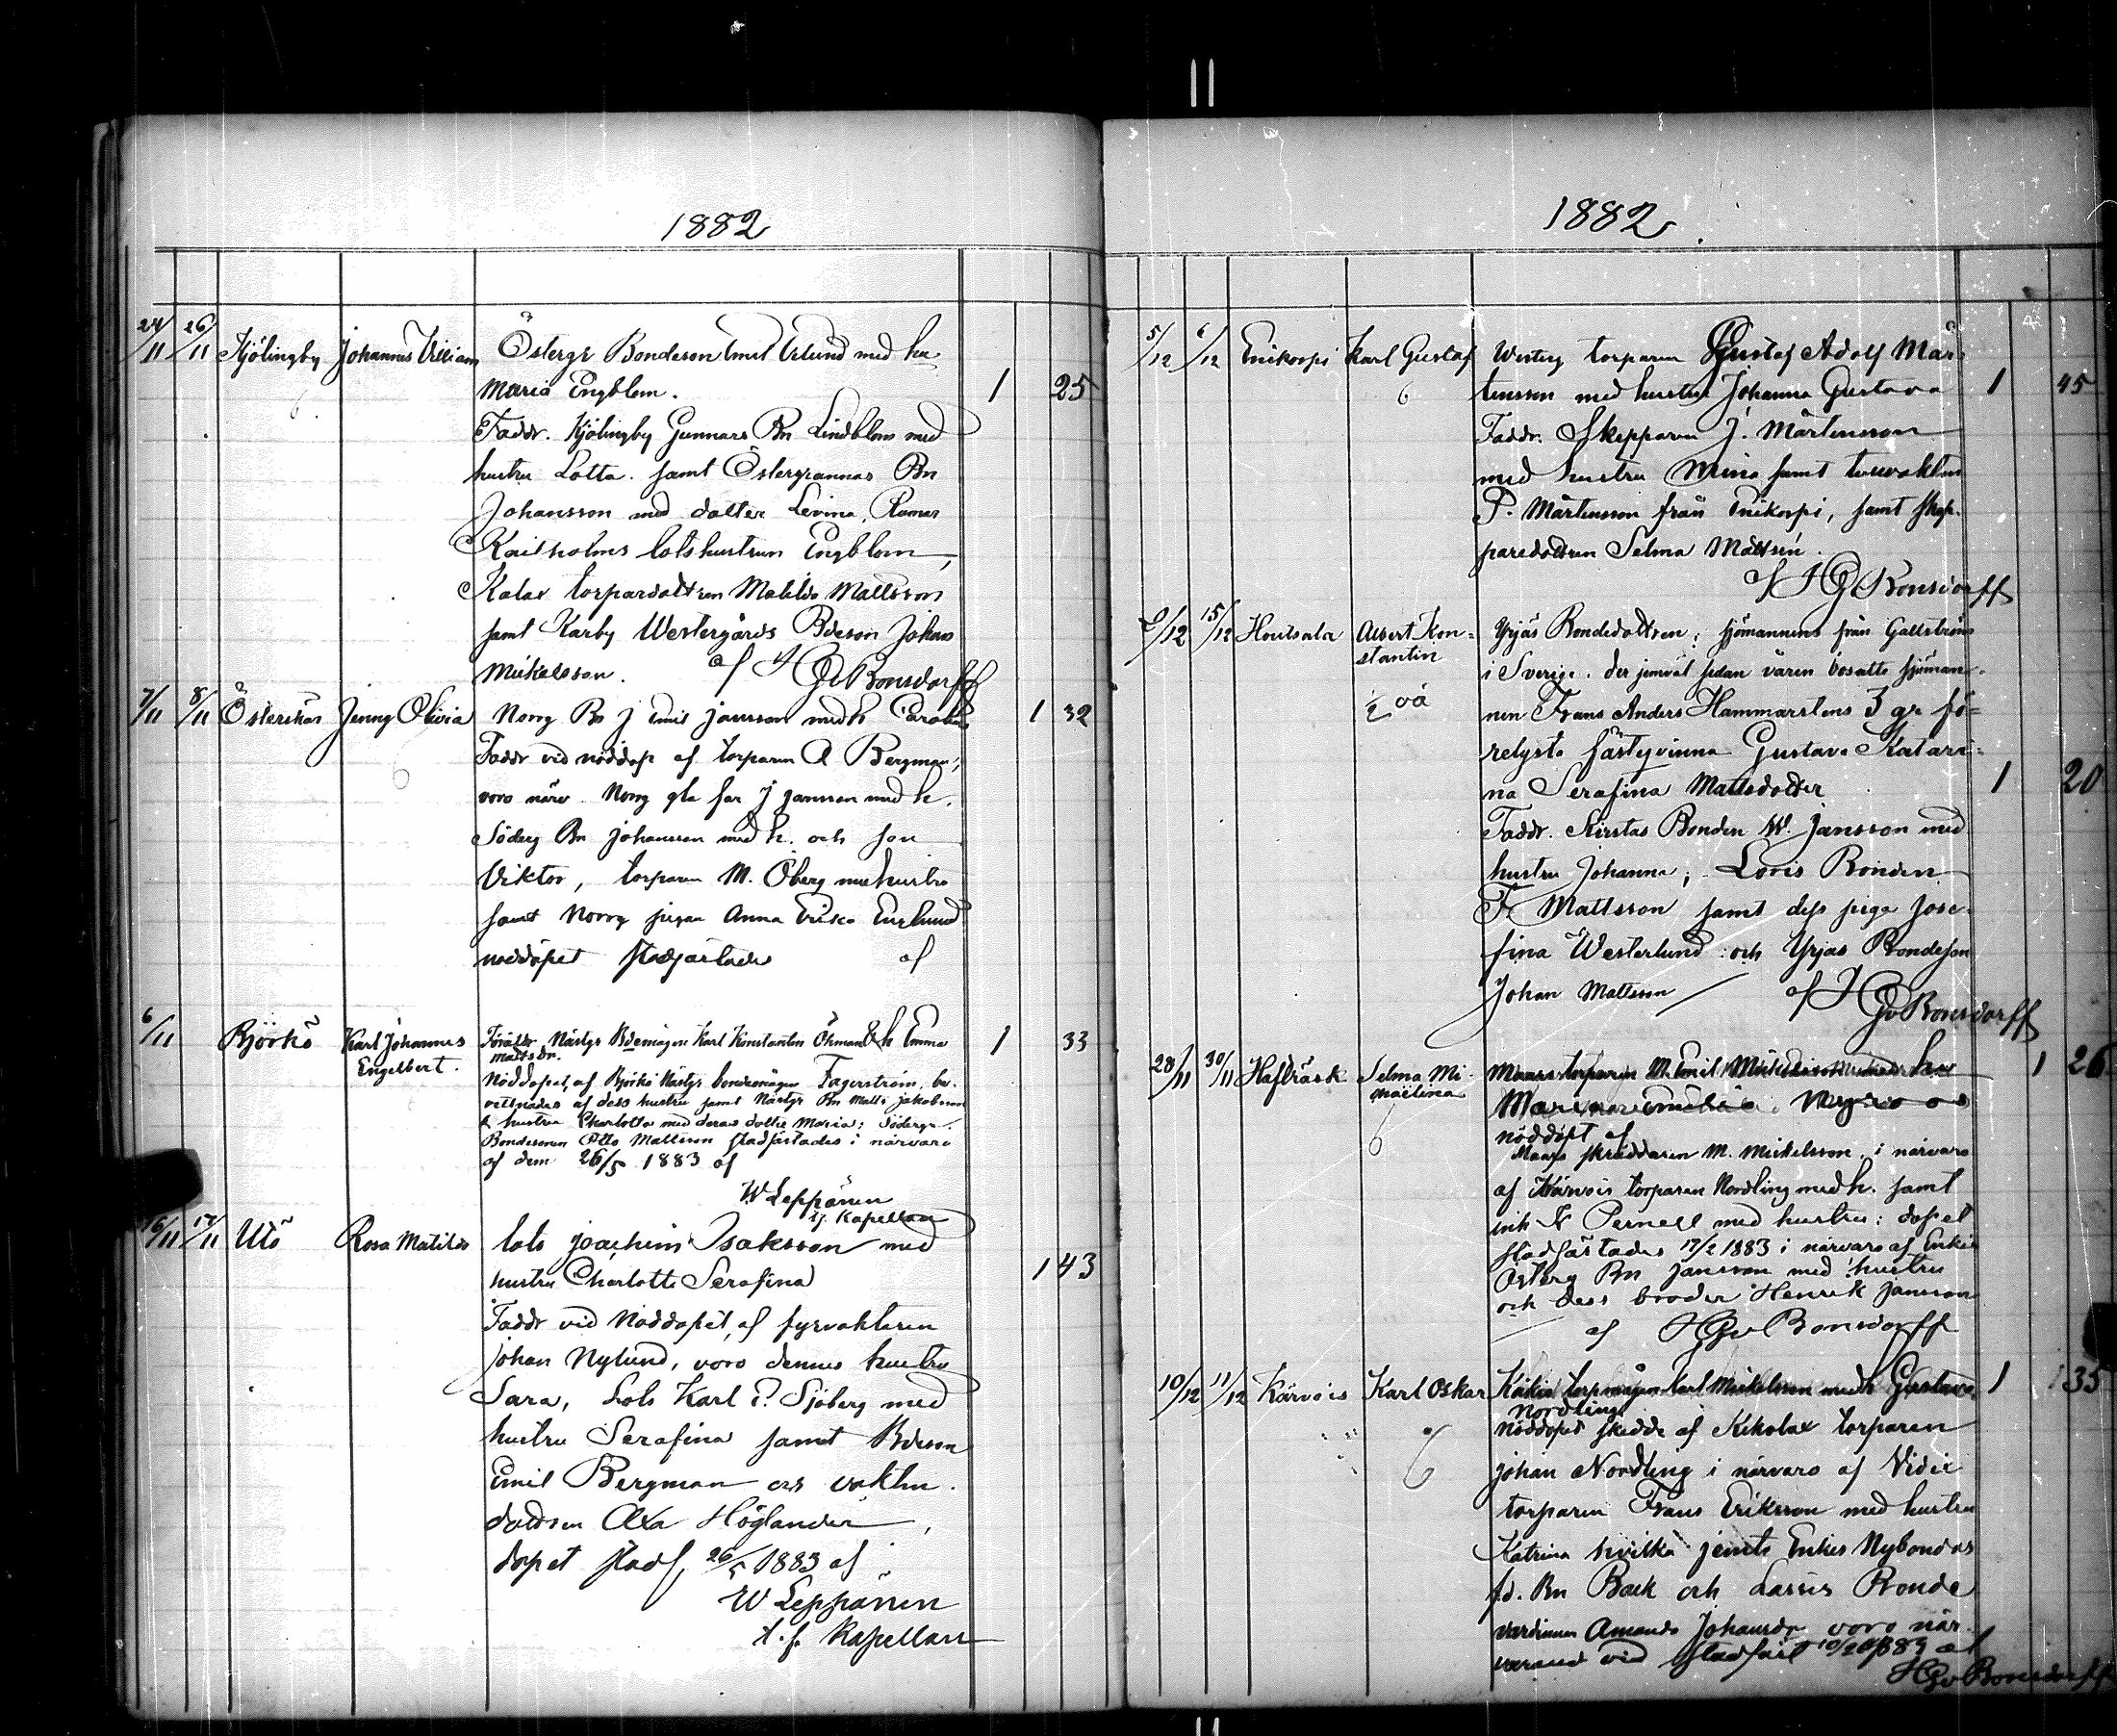 1882
24/11 26/11 Kjölingby Johannes Viliam Östergs Bondeson Emil Velund med hu
Maria Engblom. 1 25
Faddr. Kjölingby Gunnars Bn Lindblom med
hustru Lotta. samt Östergrannas Bn
Johansson med dotter Levina,
lotshustrun Engblom,
Kalax torpardottren Matilda Mattsson
samt Karby Westergårds Bdeson Johan
Mickelsson. af HGvBonsdorff
7/11 8/11 Österskär Jenny Olivia Norrg Bn J Emil Jansson med h Carolina 1 32
Faddr vid nöddop af torparen A Bergman,
voro närv. Norrg gla far J Jansson med h.
Söderg Bn Johansson med h. och son
Viktor, torparen M. Öberg med hustru
samt Norrg pigan Anna Erica Englund
nöddopet stadfästades af
6/11 Björkö Karl Johannes Föräldr. Nästgs Bdemågen Karl Konstantin Öhman & h Emma 1 33
Engelbert. Mattsdr.
Nöddopet, af Björkö Nästgs bondemågen Fagerström, be-
vittnades af dess hustru samt Nästgs Bn Matts Jakobsson
& hustru Charlotta med deras dotter Maria; Söderg.
Bondesonen Otto Mattsson stadfästades i närvaro
af dem 26/5 1883 af
W Leppänen
tj. Kapellan
16/11 17/11 Utö Rosa Matilda lots Joachim Isaksson med
hustru Charlotta Serafina 1 43
Faddr vid Nöddopet, af fyrvaktaren
Johan Nylund, voro dennes hustru
Sara, Lots Karl P. Sjöberg med
hustru Serafina samt Bdeson
Emil Bergman och vaktm.
dottren Alxa Höglander,
dopet stadf. 26/5 1883 af
W Leppänen
t.f. Kapellan
1882.
5/12 6/12 Enikorpi Karl Gustaf Westerg torparen Gustaf Adolf Mår-
6 tensson med hustru Johanna Gustava 1 45
Faddr. Skepparen J. Mårtensson
med hustru Mina samt
P. Mårtensson från Enikorpi, samt skep-
paredottren Selma Mattsén.
af HGvBonsdorff
/12 15/12 Houtsala Albert Kon- Yrjäs Bondedottren, sjömannens från Gallström
stantin i Sverige, der jemväl sedan våren bosatte sjöman-
½ oä nen Frans Anders Hammarstens 3 gr fö-
relysta fästeqvinna Gustava Katari-
na Serafina Mattsdotter 1 20
Faddr. Kirstas Bonden W. Jansson med
hustru Johanna; Loris Bonden
F. Mattsson samt dess piga Jose-
fina Westerlund och Yrjas Bondeson
Johan Mattsson af HGvBonsdorff
28/11 30/11 Hafträsk Selma Mi- Maars torparen M. Emil Mickelsson med hu 1 26
kaelina Maria
6 nöddöpt af
Maars skräddaren M. Mickelsson, i närvaro
af Kärvois torparen Nordling med h. samt
inh K Pernell med hustru: dopet
stadfästades 17/2 1883 i närvaro af Enkis
Österg Bn Jansson med hustru
och dess broder Henrik Jansson
af HGvBonsdorff
10/12 11/12 Kärvois Karl Oskar torpmågen Karl Mickelsson med h Gustava 1 35
Nordling
6 Nöddopet skedde af Kikolax torparen
Johan Nordling i närvaro af Vidix
torparen Frans Eriksson med hustru
Katrina hvilka jemte Enkis Nybondas
fd. Bn Back och Lassis Bonde
värdinnan Amanda Johansdr voro när-
varand vid stadfäst 10/2 1883 af
HGvBonsdorff